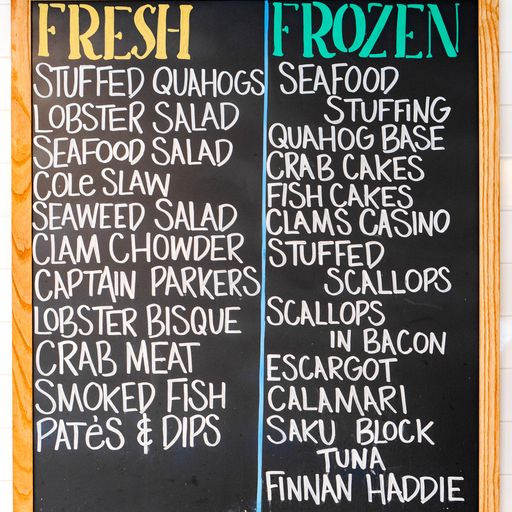 FRESH
STUFFED QUAHOGS
LOBSTER SALAD
SEAFOOD SALAD
COLe SLAW
SEAWEED SALAD
CLAM CHOWDER
CAPTAIN PARKERS
LOBSTER BISQUE
CRAB MEAT
SMOKED FISH
PATéS & DIPS
FROZEN
SEAFOOD
STUFFING
QUAHOG BASE
CRAB CAKES
FISH CAKES
CLAMS CASINO
STUFFED
SCALLOPS
SCALLOPS
IN BACON
ESCARGOT
CALAMARI
SAKU BLOCK
TUNA
FINNAN HADDIE